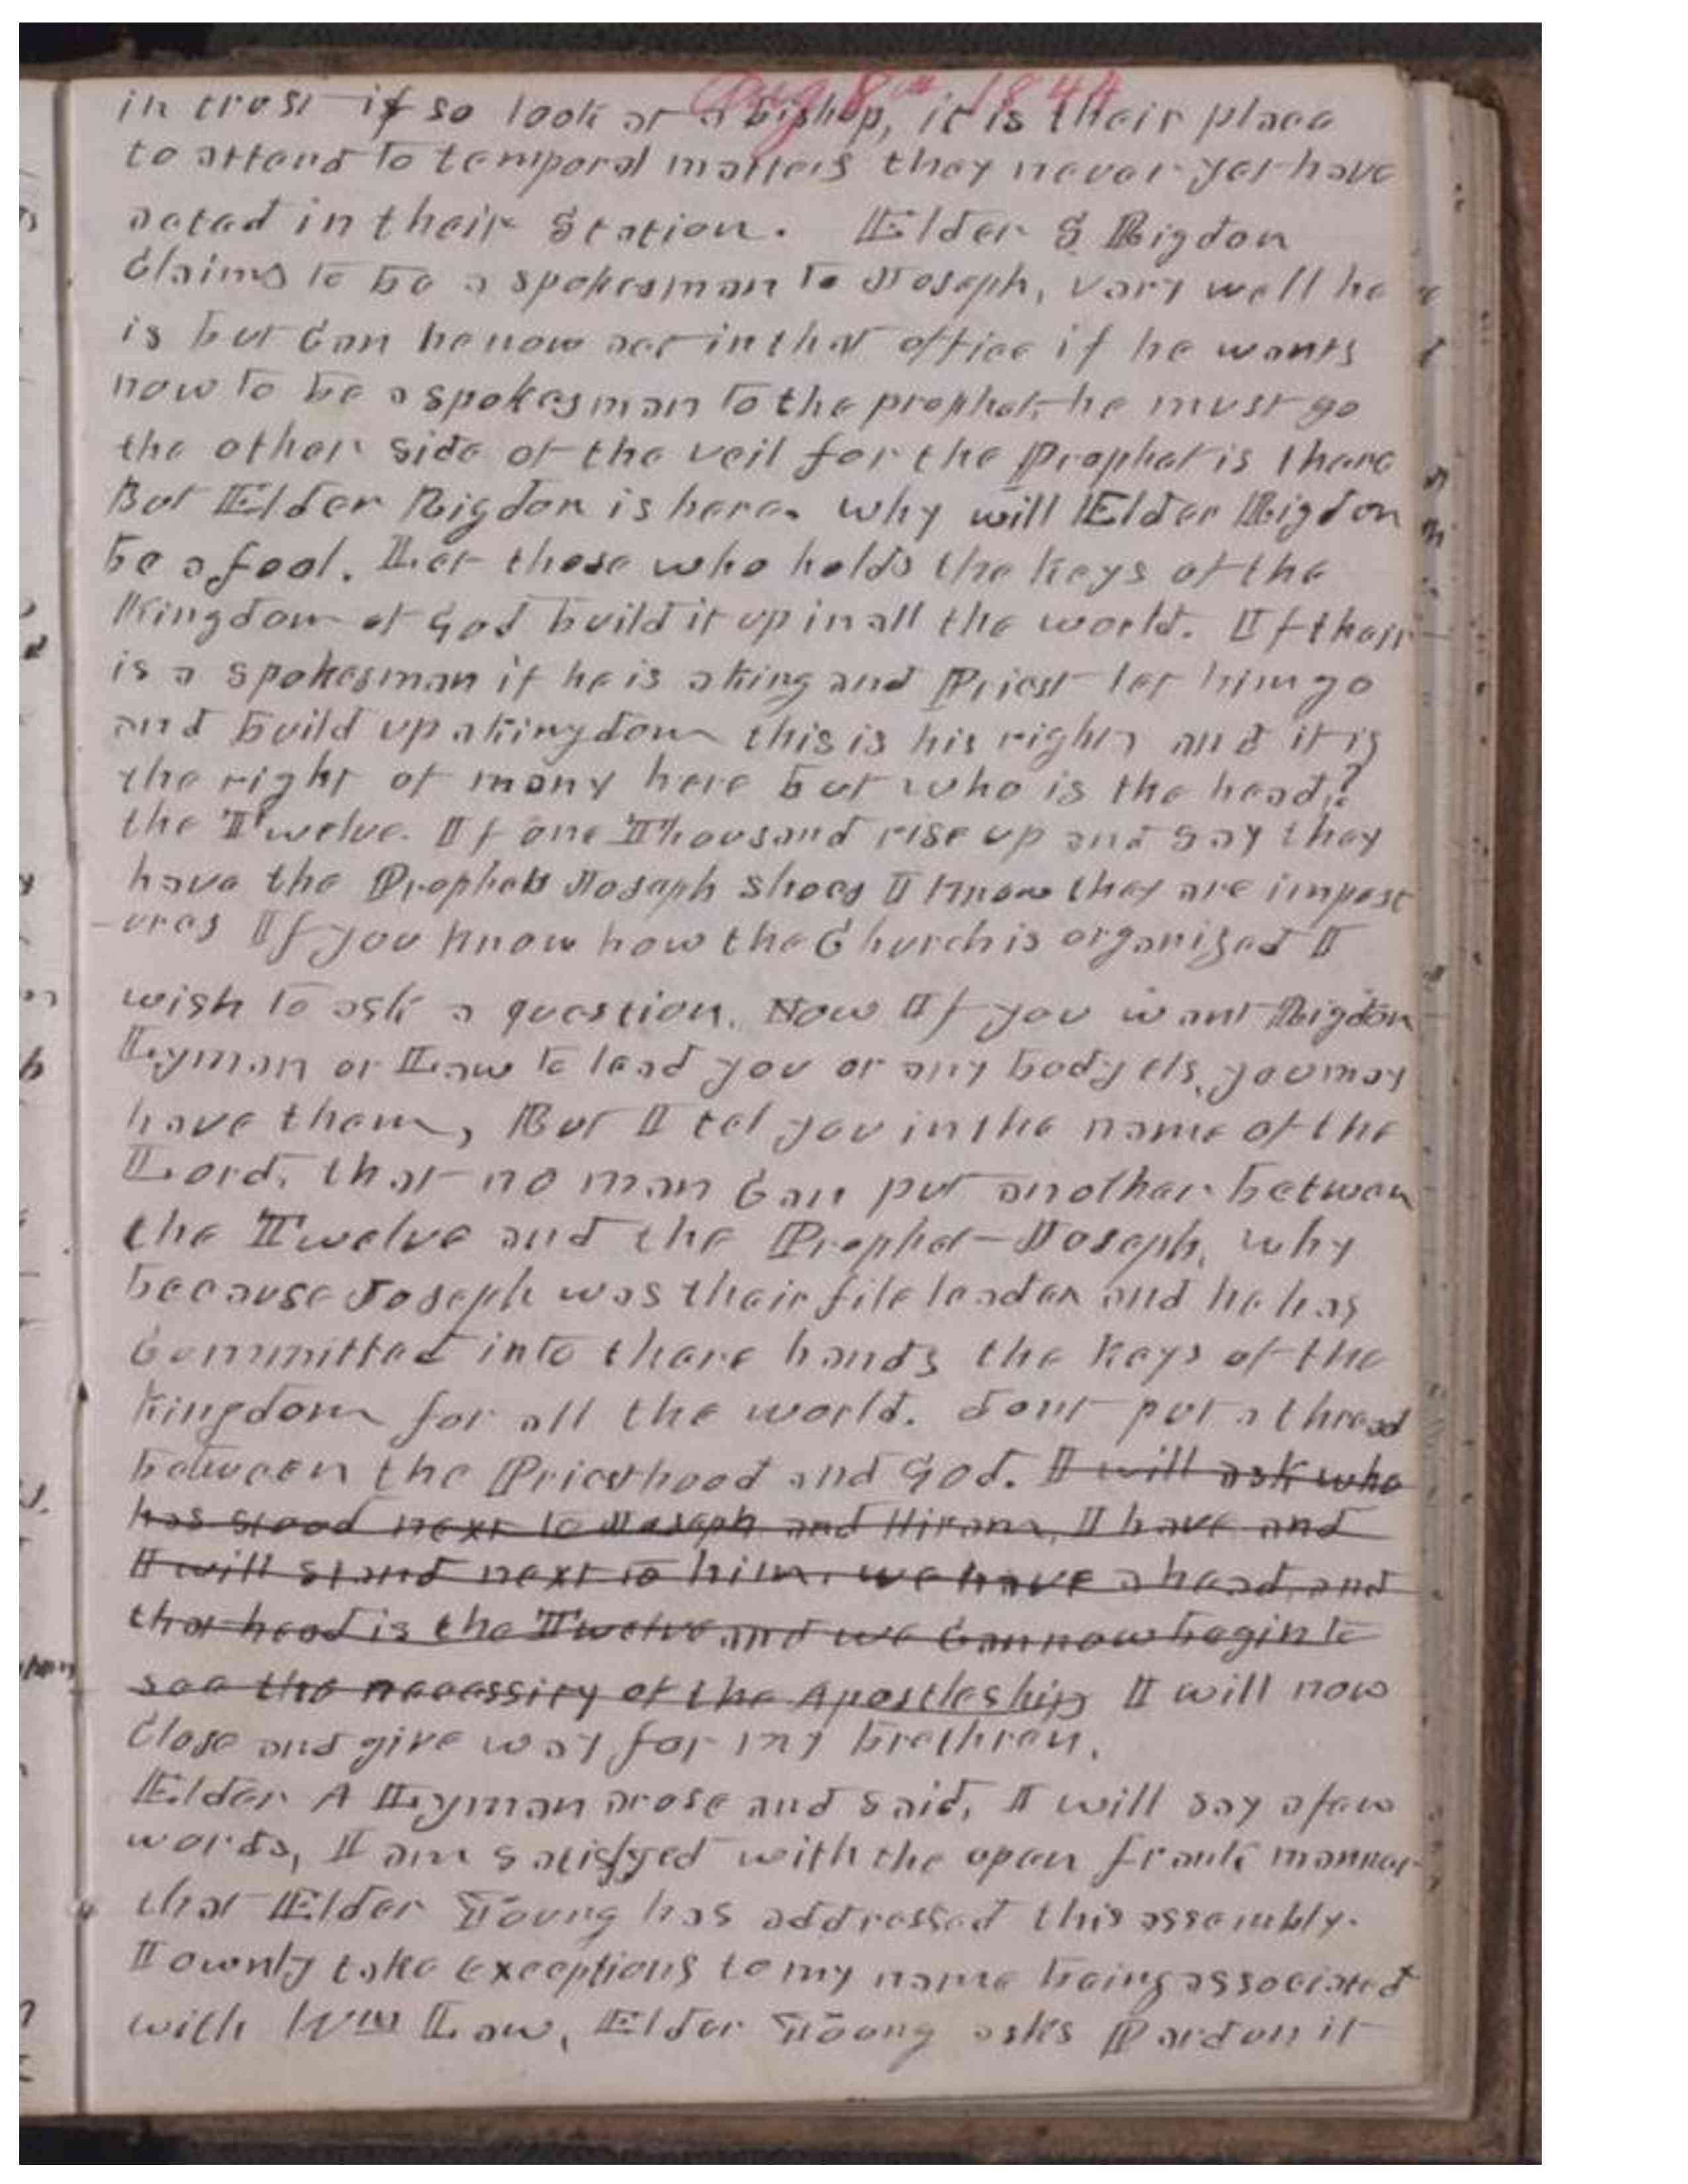 Aug 8th 1844
in trust if so look at a bishop, it is their place
to attend to temporal matters they never yet have
acted in their Station. Elder S Rigdon
Claims to be a spokesman to Joseph, vary well he
is but Can he now act in that office if he wants
now to be a spokesman to the prophet he must go
the other side of the veil for the Prophet is there
But Elder Rigdon is here. why will Elder Rigdon
be a fool. Let those who holds the keys of the
Kingdom of God build it up in all the world. If their
is a spokesman if he is a king and Priest let him go
and build up a kingdom this is his right and it is
the right of many here but who is the head?
the Twelve. If one Thousand rise up and say they
have the Prophets Joseph Shoes I know they are impost
-ures If you know how the Church is organized I
wish to ask a question. Now If you want Rigdon
Lyman or Law to lead you or any body els, you may
have them, But I tel you in the name of the
Lord, that no man Can put another betwen
the Twelve and the Prophet Joseph, why
because Joseph was their file leader and he has
Committed into there hands the keys of the
kingdom for all the world. dont put a thread
between the Priesthood and God. I will ask who
has stood next to Joseph and Hiram, I have and
I will stand next to him. we have a head, and
that head is the Twelve and we Can now begin to
see the necessity of the Apostleship I will now
Close and give way for my brethren.
Elder A Lyman arose and said, I will say a few
words, I am satisfyed with the open frank manner
that Elder Young has addressed this assembly.
I ownly take exceptions to my name being associated
with Wm Law, Elder Young asks Pardon it